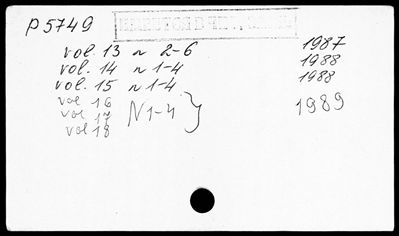 P 5749
vol. 13 n 2-6 1987
vol. 14 n 1-4 1988
vol. 15 n 1-4 1988
vol 16
vol 17 N 1-4 } 1989
vol 18